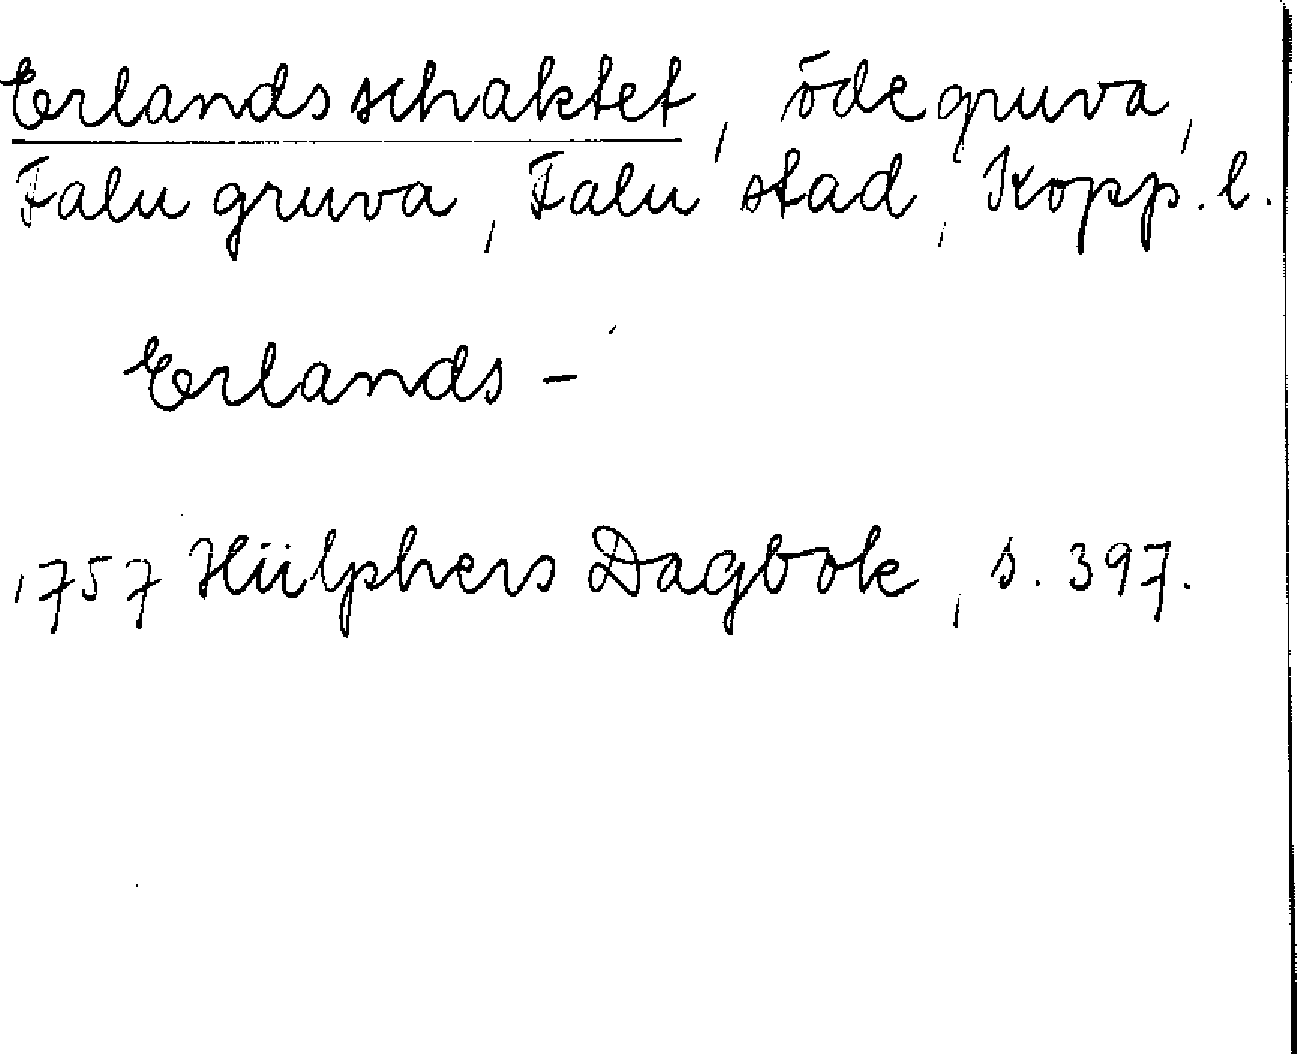 Erlandsschaktet, öde gruva,
Falu gruva, Falu stad, Kopp. l.
Erlands -
1757 Hülphers Dagbok, s. 397.